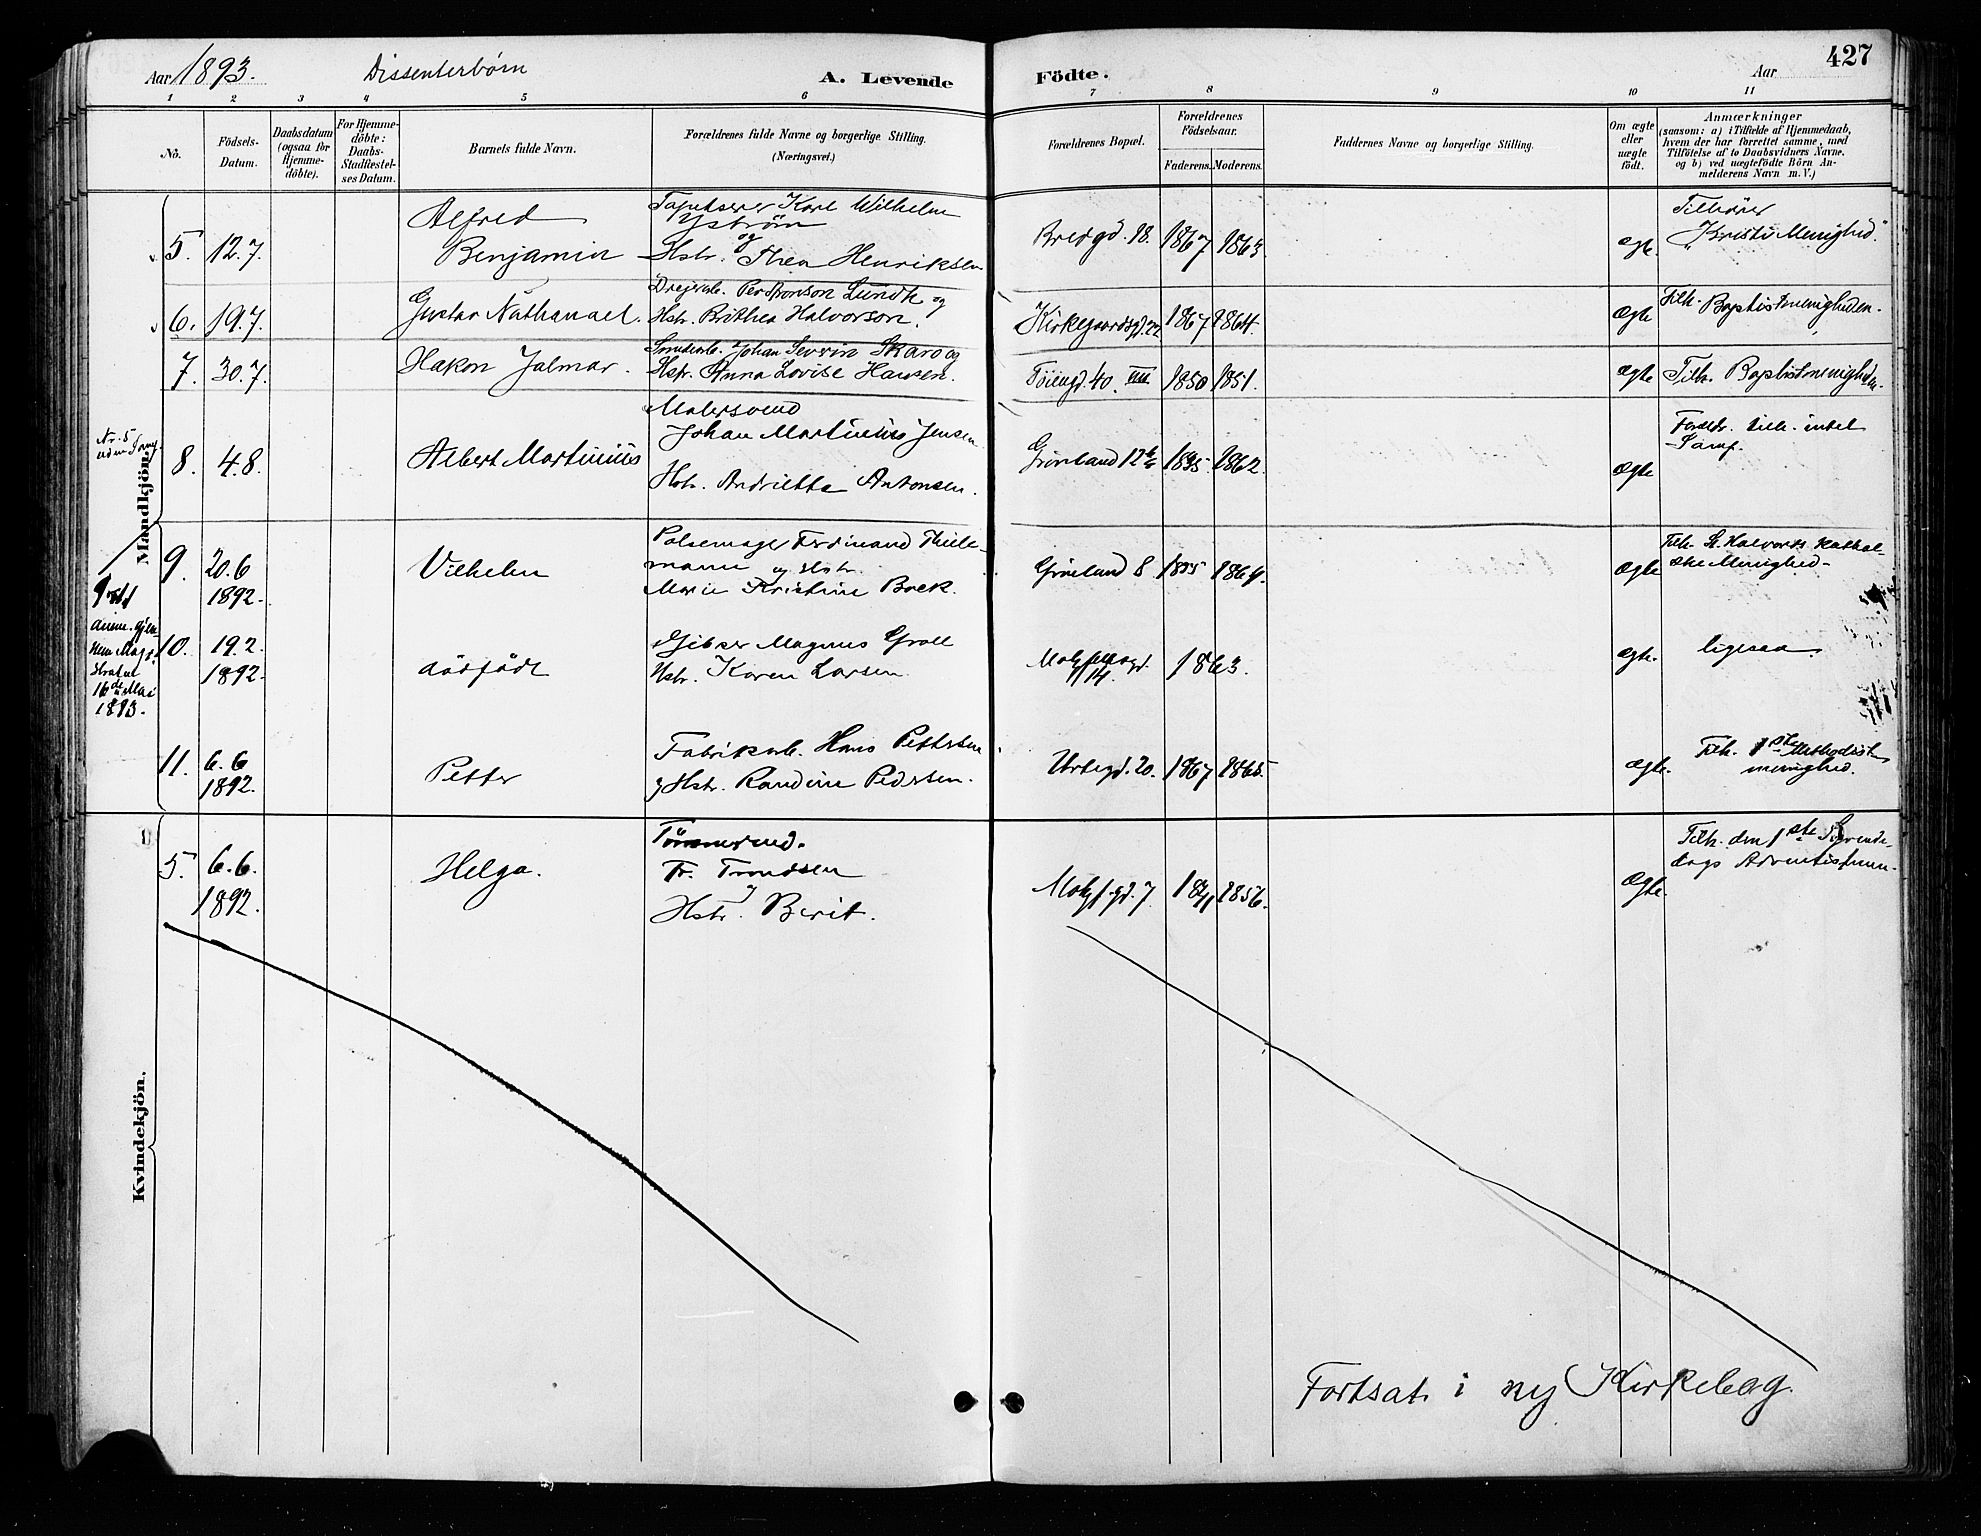 427
Aar 1893. Dissenterbörn A. Levende Födte. Aar
1 2 3 4 5 6 7 8 9 10 11
No.
Födsels-
Datum.
Daabsdatum
(ogsaa for
Hjemme-
döbte).
For Hjemme-
döbte:
Daabs-
Stadfæstel-
ses Datum.
Barnets fulde Navn.
Forældrenes fulde Navne og borgerlige Stilling.
(Næringsvei.)
Forældrenes Bopæl.
Forældrenes
Födselsaar.
Faderens. Moderens.
Faddernes Navne og borgerlige Stilling.
Om ægte
eller
uægte
födt.
Anmærkninger
(saasom: a) i Tilfælde af Hjemmedaab,
hvem der har forrettet samme, med
Tilföielse af to Daabsvidners Navne,
og b) ved uægtefödte Börn An-
melderens Navn m. V.)
Mandkjön.
5. 12.7. Alfred
Benjamin
Tapetserer Karl Wilhelm
Yström
og
Hstr. Thea Henriksen
Bredgd. 18. 1867 1863.
ægte.
Tilhører
"Kristi Menighed."
6. 19.7. Gustav Nathanael.
Drejersv. Per Aronson Lundh og
Hstr. Brithea Halvorson.
Kirkegaardsgd. 22 1867 1864.
ægte
Tilh. Baptistmenigheden.
7. 30.7. Hakon Jalmar.
Smedarb. Johan Severin Skaro og
Hstr. Anna Lovise Hansen.
Töiengd. 40. III 1850 1851.
ægte
Tilh. Baptistmenigheden.
Nr. 5
8. 4.8. Albert Martinius
Malersvend
Johan Martinius Jensen
Hstr. Andrietta Antonsen.
Grönland 12 1862.
ægte
Foreldr. tilh. intet
Samf.
9. 20.6
1892.
Vilhelm
Pølsemager Ferdinand Thiele-
mann og Hstr.
Marie Kristine Boek.
Grönland 8 1855 1864.
ægte
Tilh. St. Halvards kathol-
ske Menighed.
anm. gjen-
nem Magi-
stratet
16de Mai
1893.
10. 19.2
1892.
dødfødt
Gibser Magnus Groll
Hstr. Karen Larsen.
14. 1863.
ægte.
ligesaa
11. 6.6
1892.
Petter
Fabrikarb. Hans Pettersen
g Hstr. Randine Pedersen.
Urtegd. 20. 1867 1865.
ægte.
Tilh. 1ste Methodist
menighed.
Kvindekjön.
5. 6.6.
1892.
Helga.
Tömmermd.
Fr. Trondsen
Hstr. Berit.
1856.
ægte.
Tilh. den 1ste Syvende-
dags Adventistmen.
Fortsat i ny Kirkebog.